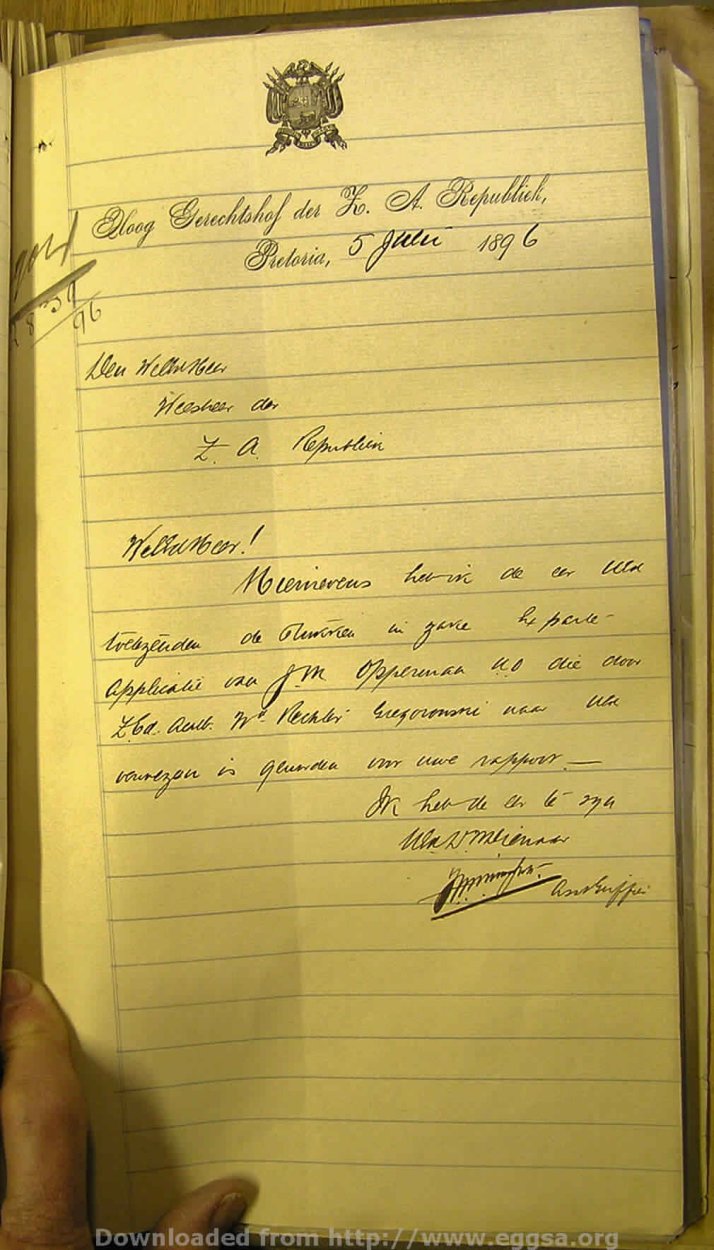 Hoog Gerechtshof der Z. A. Republiek,
Pretoria, 5 Juli 1896
96
Den WelEdHeer
Weesheer der
Z. A. Republiek
WelEdHeer!
Hiernevens heb ik de eer UEd
toetezenden de stukken in zake Ex parte
applicatie van J M Opperman N.O die door
ZEd. Achtb. Rechter Gregorowski naar UEd
verwezen is geworden voor uwe rapport. —
Ik heb de eer te zyn
UEd DW Dienaar
Asst Griffier
Downloaded from http://www.eggsa.org